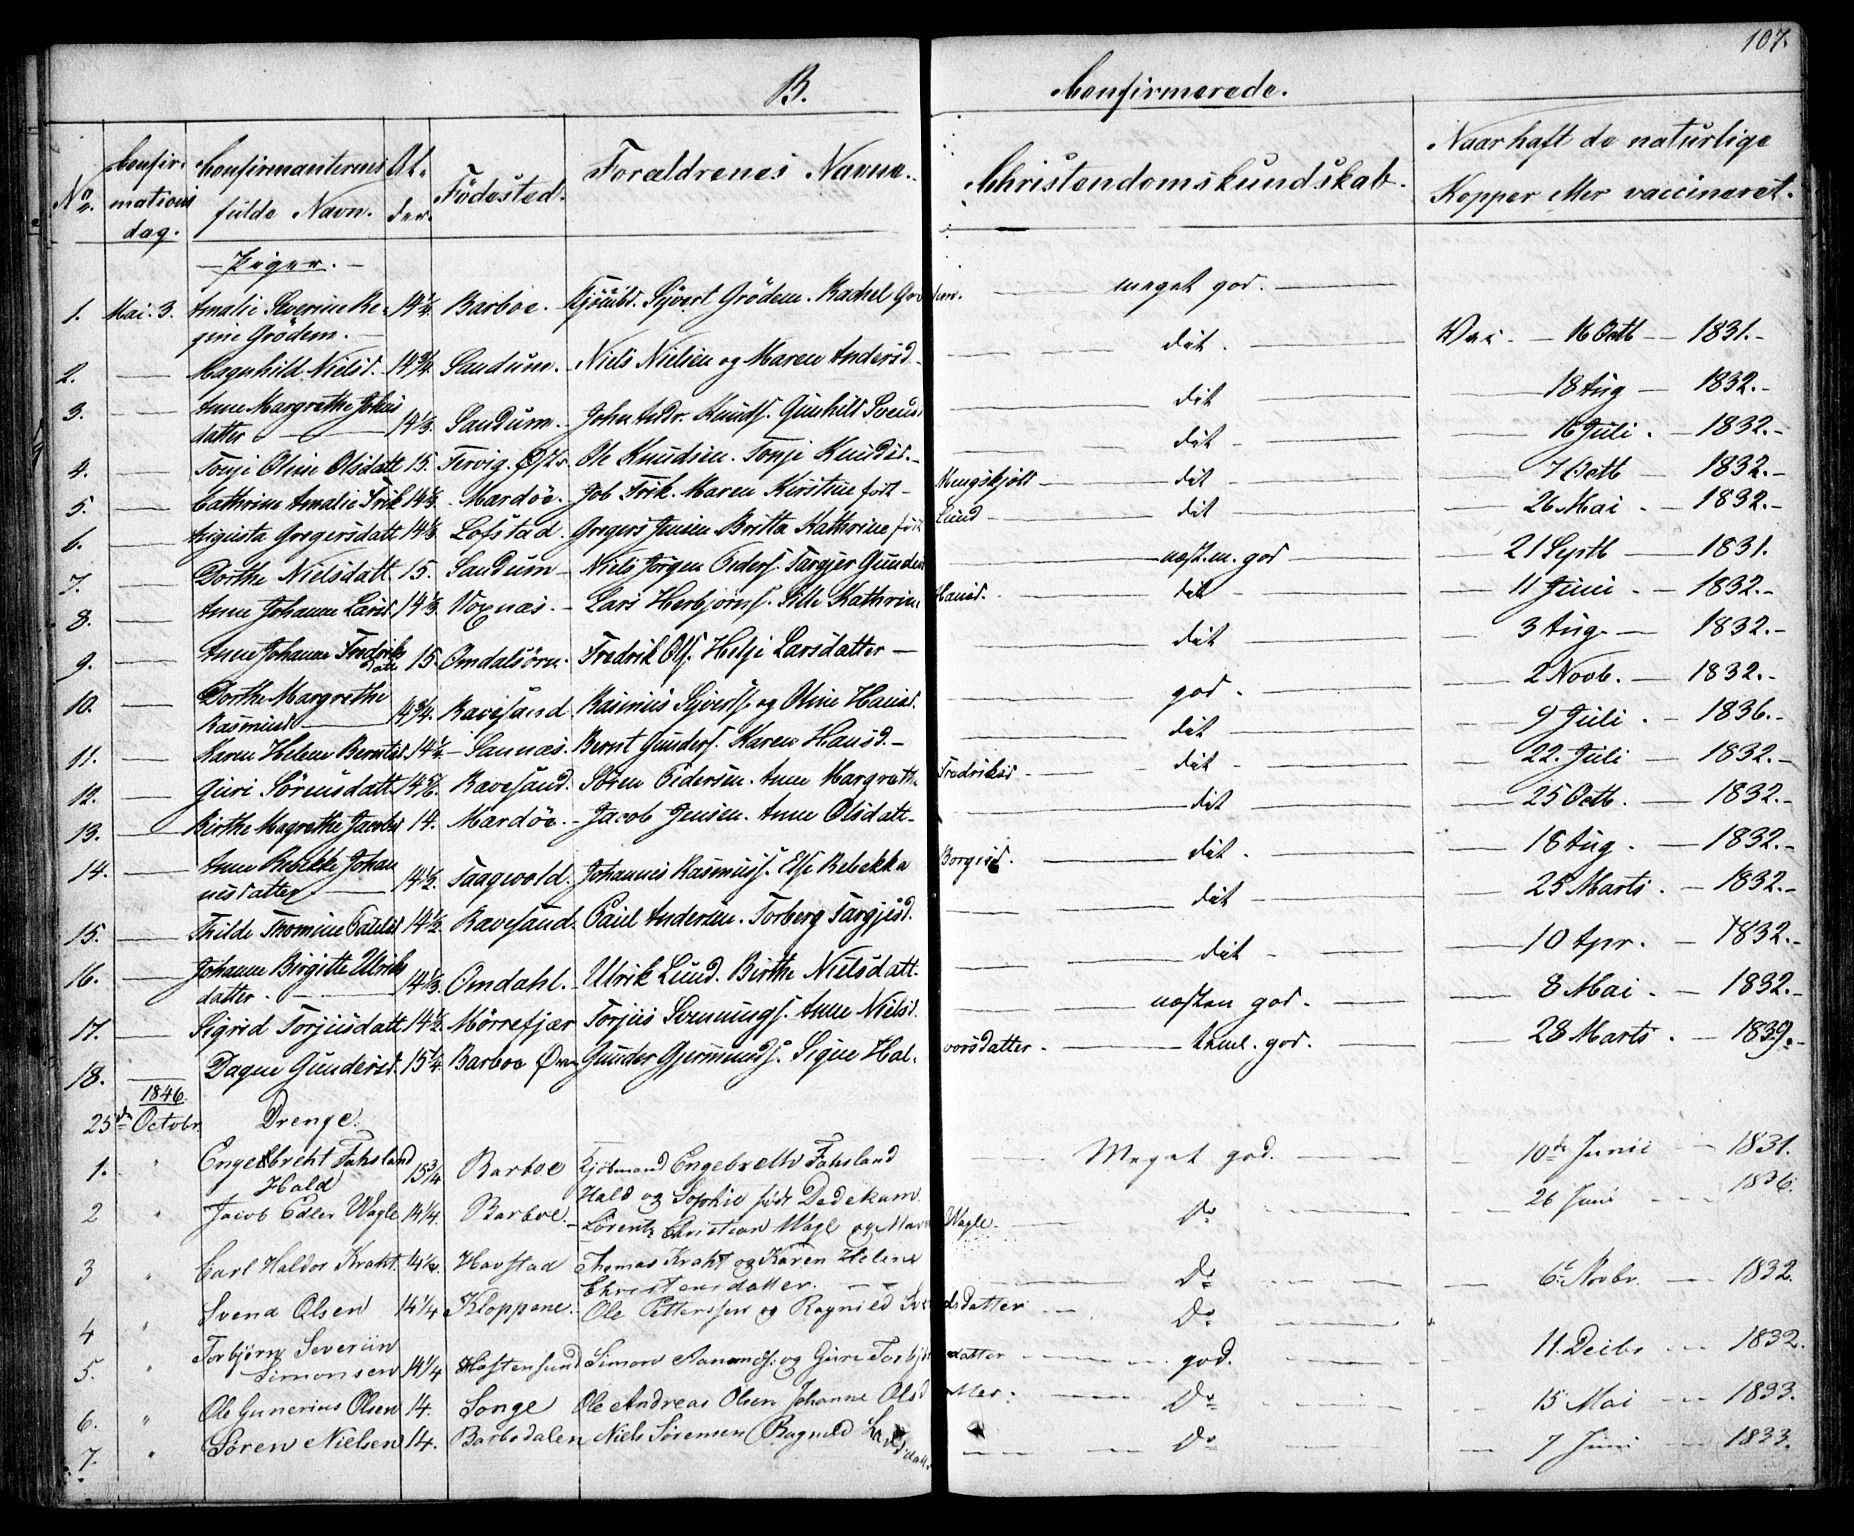 107.
B. Confirmerede.
No. Confirmations dag. Confirmanternes fulde Navn. Alder. Födested. Forældrenes Navne. Christendomskundskab. Naar haft de naturlige Kopper eller vaccineret.
— Piger. —
1. Mai. 3. Amalie Severine Regine Grödem. 14¼ Barboe. Kjöbmd. Syvert Grödem. Rachel Grödem. meget god. Vac. 16 Octb 1831.
2. Magnhild Nielsd. 14¾ Sandum. Niels Nielsen og Maren Andersd. dit. 18 Aug 1832.
3. Anne Margrethe Johnsdatter 14⅓ Sandum. John Andr. Knuds. Gunhild Svensd dit 16 Juli. 1832.
4. Tonje Oline Olsdatt 15. Tervig. Öst. Ole Knudsen. Tonje Knudsd. dit 7 Octb 1832.
5. Cathrine Amalie Frik 14⅓ Mardöe. Job Frik. Maren Kirstine födt Mengshjött dit 26 Mai. 1832.
6. Augusta Gregersdatt 14⅓ Lofstad. Gregers Jensen Britta Kathrine födt Lund dit 21 Septb 1831.
7. Dorthe Nielsdatt 15. Sandum Niels Jörgen Peders. Targjer Gundersd næsten god 11 Juni. 1832.
8. Anne Johanne Larsd. 14⅓ Voxnæs. Lars Herbjörns. Sille Kathrine Hansd. dit 3 Aug. 1832.
9. Anne Johanne Fredriksdatt 15. Omdalsörn. Fredrik Ols. Helje Larsdatter dit 2 Novb. 1832.
10. Dorthe Margrethe Rasmusd. 14¾. Ravesand. Rasmus Syverts. og Oline Hansd. god. 9 Juli. 1836.
11. Karen Helene Berntsd. 14½ Sannæs. Bernt Gunders. Karen Hansd. dit 22. Juli 1832.
12. Guri Sörensdatt 14⅚. Ravesand. Sören Pedersen. Anne Margrethe Fredriksd dit 25 Octb. 1832.
13. Birthe Magrethe Jacobsd 14. Mardöe. Jacob Jensen. Anne Olsdatt dit 18 Aug. 1832.
14. Anne Rebekke Johannesdatter 14½. Taagevold. Johannes Rasmuss. Else Rebekka Borgesd. dit. 25 Marts. 1832.
15. Thilde Thomine Paulsd 14½ Ravesand. Paul Andersen. Torberg Targjesd. dit 10 Apr. 1832.
16. Johanne Birgitte Ulriksdatter. 14⅓. Omdahl. Ulrik Lund. Birthe Nielsdatt. dit 8 Mai. 1832.
17. Sigrid Torjusdatt 14½ Mörrefjær Torjus Svennungs. Anne Nielsd. næsten god. 28 Marts. 1839.
18. Dagne Gundersd. 15¼ Barboe Gunder Gjermunds. Signe Halvorsdatter. teml. god.
1846
25de Octobr. Drenge.
1. Engebreht Fahsland Hald 15¾ Barboe Kjöbmand Engebreth Fahsland Hald og Sophie födt Dedekam Meget god. 10de Junii 1831.
2 Jacob Edler Wagle 14¼ Barboe. Lorentz Christian Wagle og Maren Wagle. Do 26 Juni 1836.
3 Carl Haldor Kraht. 14½ Havstad Thomas Kraht og Karen Helene Christensdatter. Do 6 Novbr. 1832.
4 Svend Olsen 14¼ Kloppene. Ole Petterssen og Ragnild Svendsdatter Do
5. Torbjörn Severin Simonsen 14¼ Hastensund Simon Aanends. og Guri Torbjörnsdatter god. 11. Decbr 1832.
6. Ole Gunerius Olsen 14. Songe Ole Andreas Olsen Johanne Olsdatter. Do 15 Mai 1833.
7. Sören Nielsen 14. Barbodalen Niels Sörensen Ragnild Larsdatt. Do 7 Juni 1833.